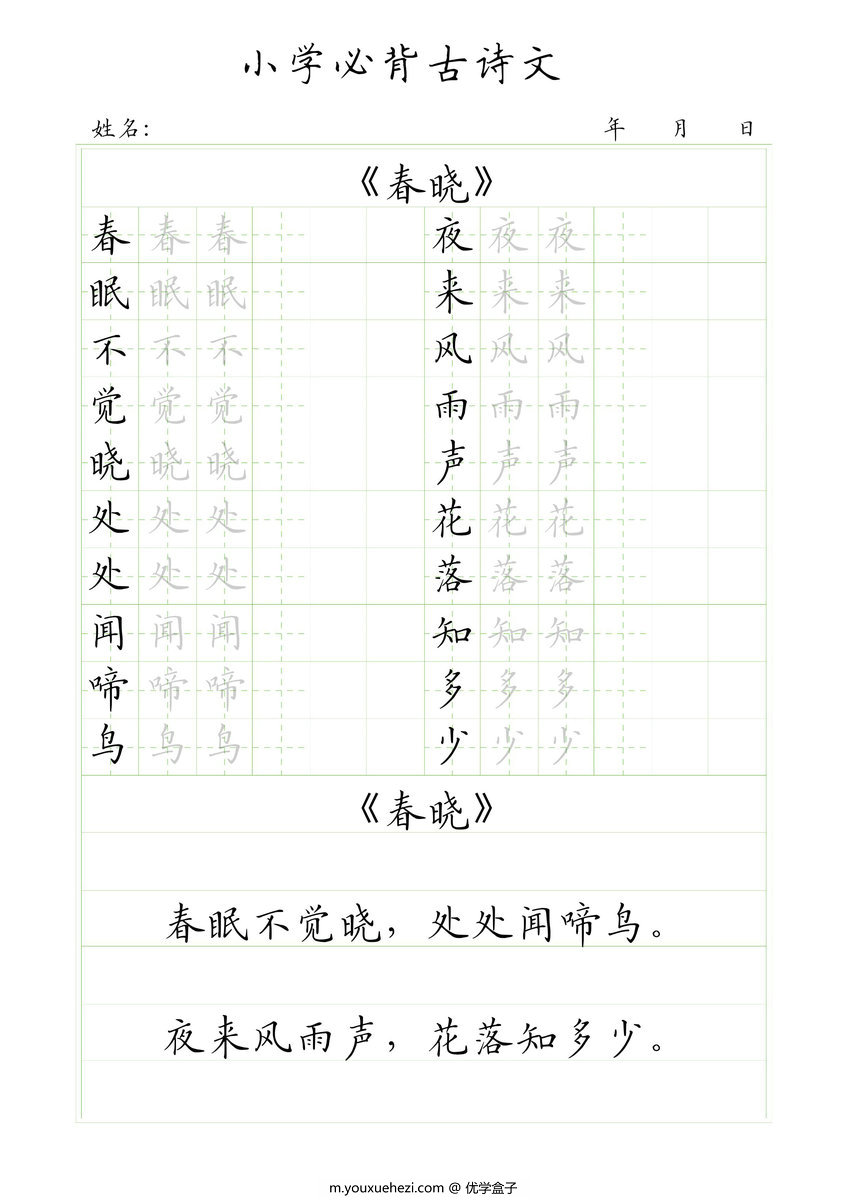 小学必背古诗文
姓名： 年 月 日
《春晓》
春 春 春 夜 夜 夜
眠 眠 眠 来 来 来
不 不 不 风 风 风
觉 觉 觉 雨 雨 雨
晓 晓 晓 声 声 声
处 处 处 花 花 花
处 处 处 落 落 落
闻 闻 闻 知 知 知
啼 啼 啼 多 多 多
鸟 鸟 鸟 少 少 少
《春晓》
春眠不觉晓，处处闻啼鸟。
夜来风雨声，花落知多少。
m.youxuehezi.com @ 优学盒子